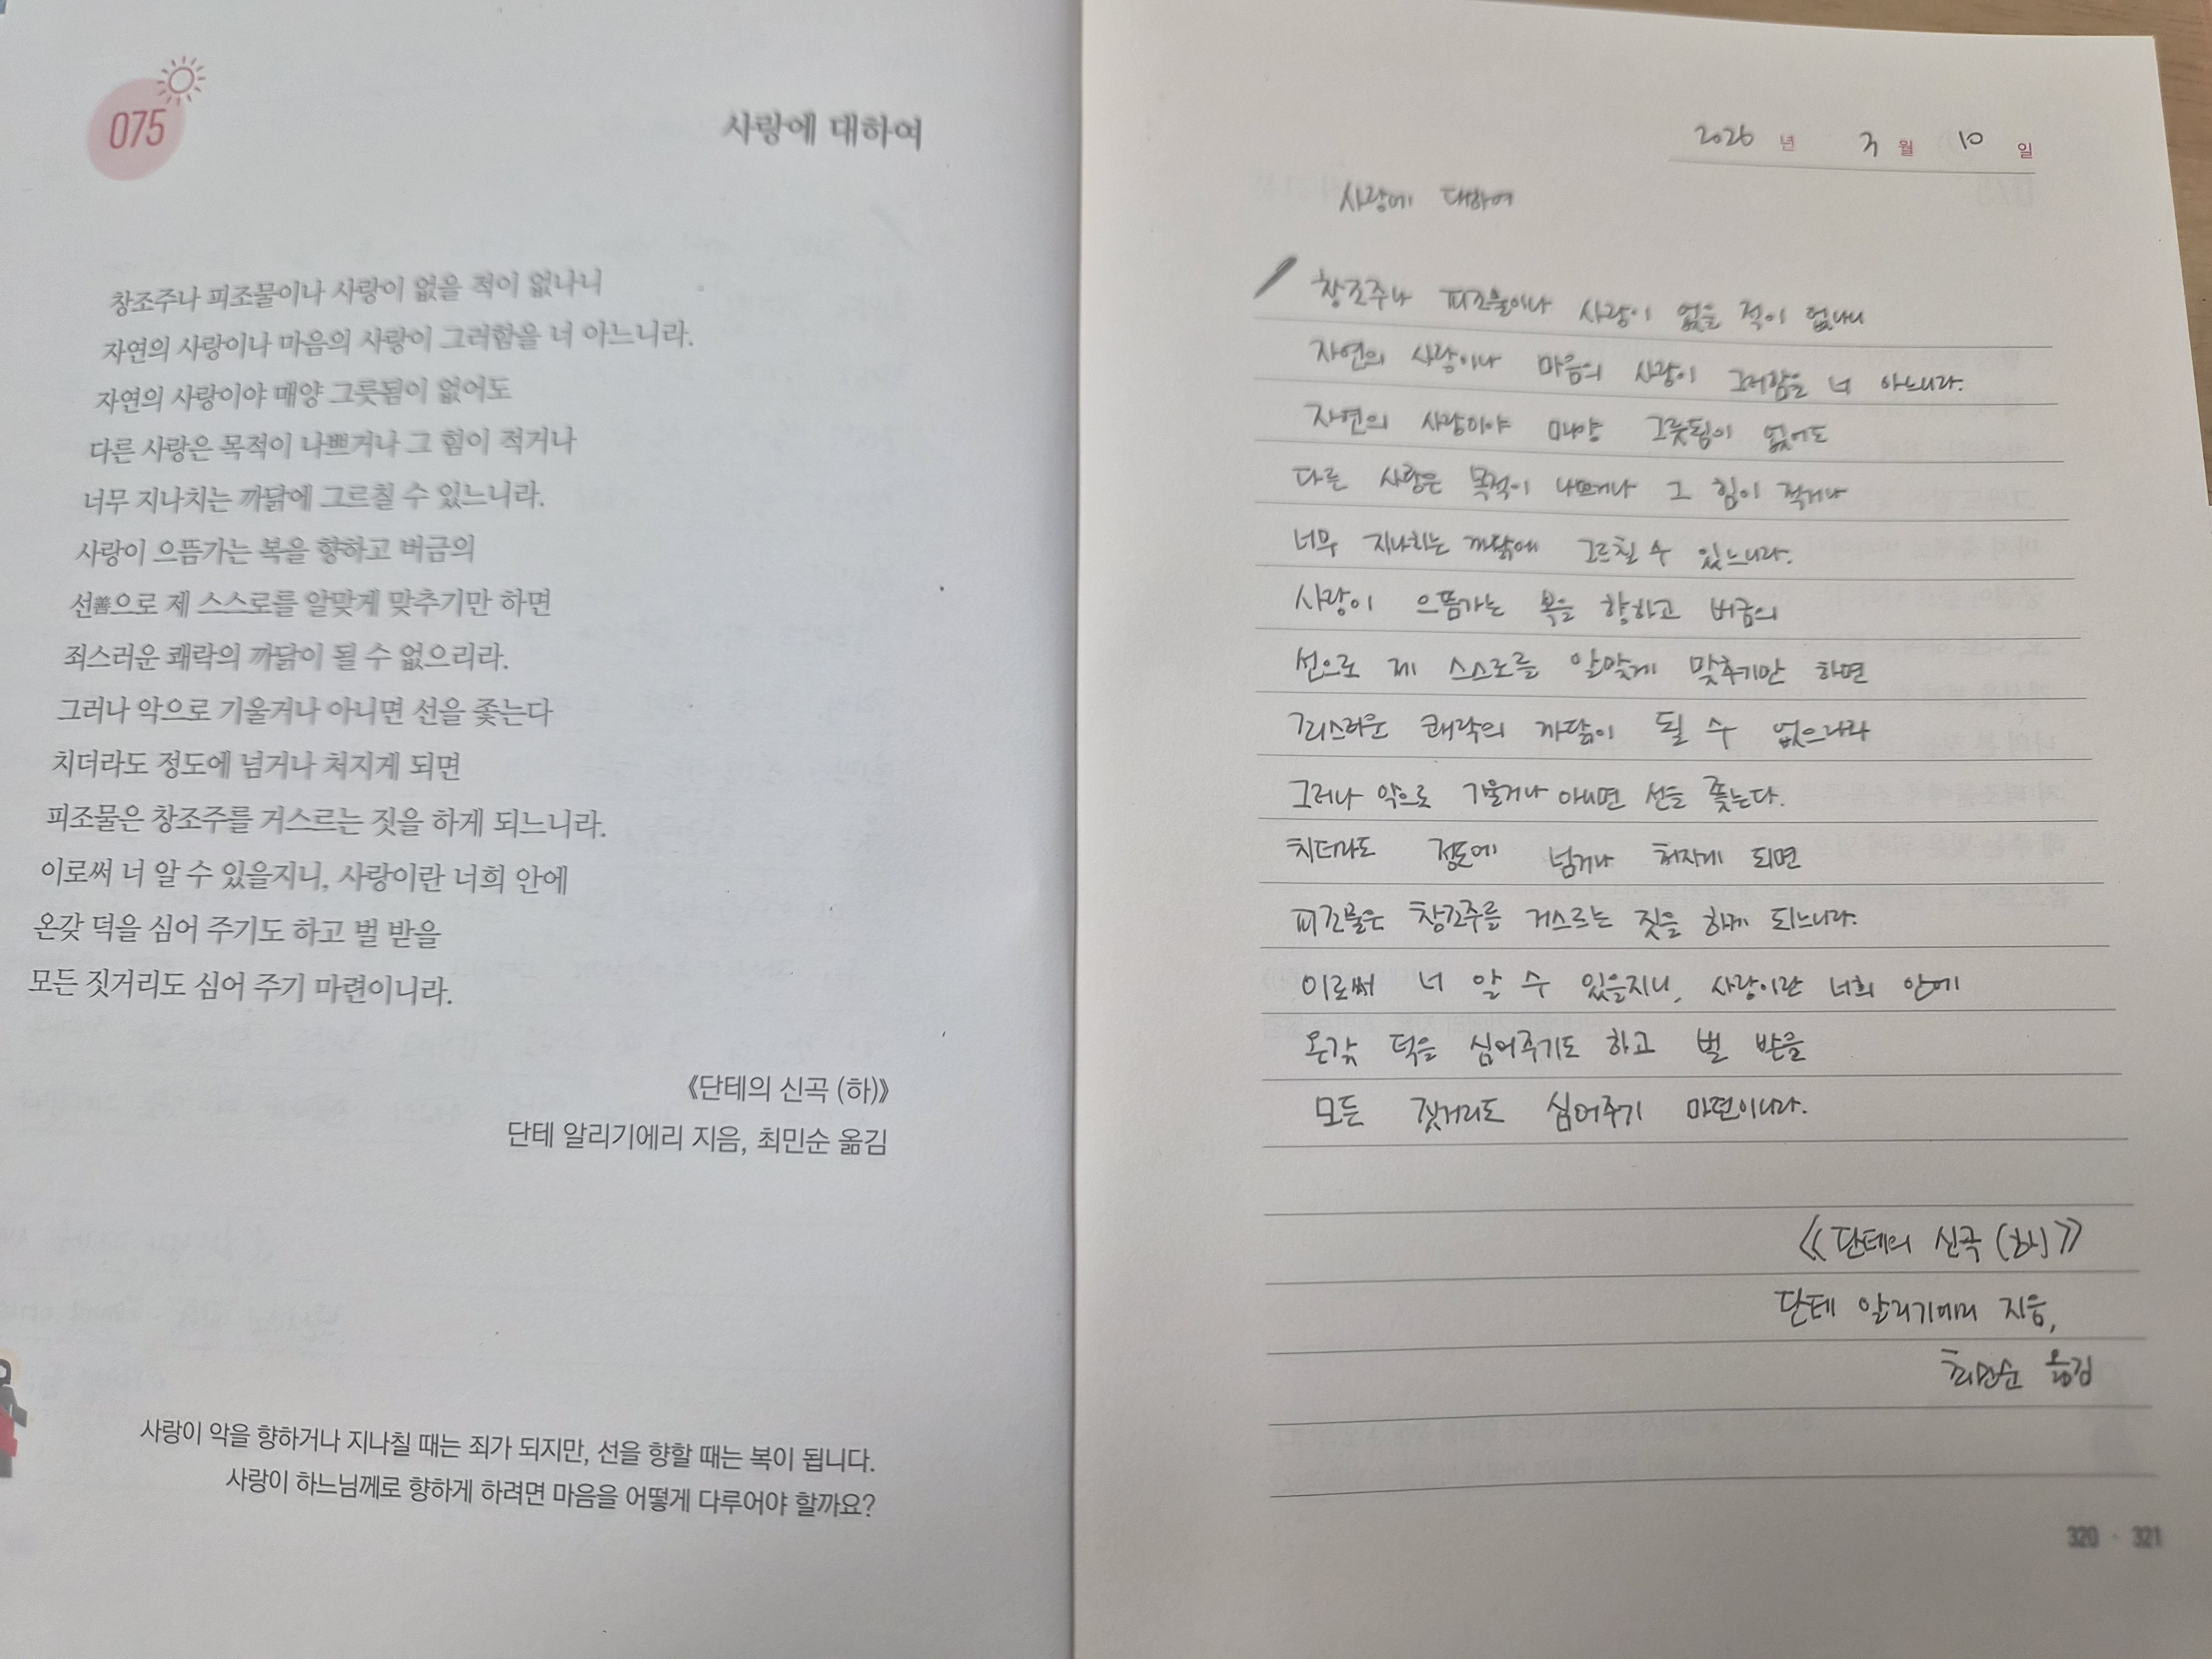 075
사랑에 대하여
창조주나 피조물이나 사랑이 없을 적이 없나니
자연의 사랑이나 마음의 사랑이 그러함을 너 아느니라.
자연의 사랑이야 매양 그릇됨이 없어도
다른 사랑은 목적이 나쁘거나 그 힘이 적거나
너무 지나치는 까닭에 그르칠 수 있느니라.
사랑이 으뜸가는 복을 향하고 버금의
선善으로 제 스스로를 알맞게 맞추기만 하면
죄스러운 쾌락의 까닭이 될 수 없으리라.
그러나 악으로 기울거나 아니면 선을 좇는다
치더라도 정도에 넘거나 처지게 되면
피조물은 창조주를 거스르는 짓을 하게 되느니라.
이로써 너 알 수 있을지니, 사랑이란 너희 안에
온갖 덕을 심어 주기도 하고 벌 받을
모든 짓거리도 심어 주기 마련이니라.
《단테의 신곡 (하)》
단테 알리기에리 지음, 최민순 옮김
사랑이 악을 향하거나 지나칠 때는 죄가 되지만, 선을 향할 때는 복이 됩니다.
사랑이 하느님께로 향하게 하려면 마음을 어떻게 다루어야 할까요?
2026 년 3 월 10 일
사랑에 대하여
창조주나 피조물이나 사랑이 없을 적이 없나니
자연의 사랑이나 마음의 사랑이 그러함을 너 아느니라.
자연의 사랑이야 매양 그릇됨이 없어도
다른 사랑은 목적이 나쁘거나 그 힘이 적거나
너무 지나치는 까닭에 그르칠 수 있느니라.
사랑이 으뜸가는 복을 향하고 버금의
선으로 제 스스로를 알맞게 맞추기만 하면
죄스러운 쾌락의 까닭이 될 수 없으리라
그러나 악으로 기울거나 아니면 선을 좇는다.
치더라도 정도에 넘거나 처지게 되면
피조물은 창조주를 거스르는 짓을 하게 되느니라.
이로써 너 알 수 있을지니, 사랑이란 너희 안에
온갖 덕을 심어주기도 하고 벌 받을
모든 짓거리도 심어주기 마련이니라.
《단테의 신곡 (하)》
단테 알리기에리 지음,
최민순 옮김
320 · 321